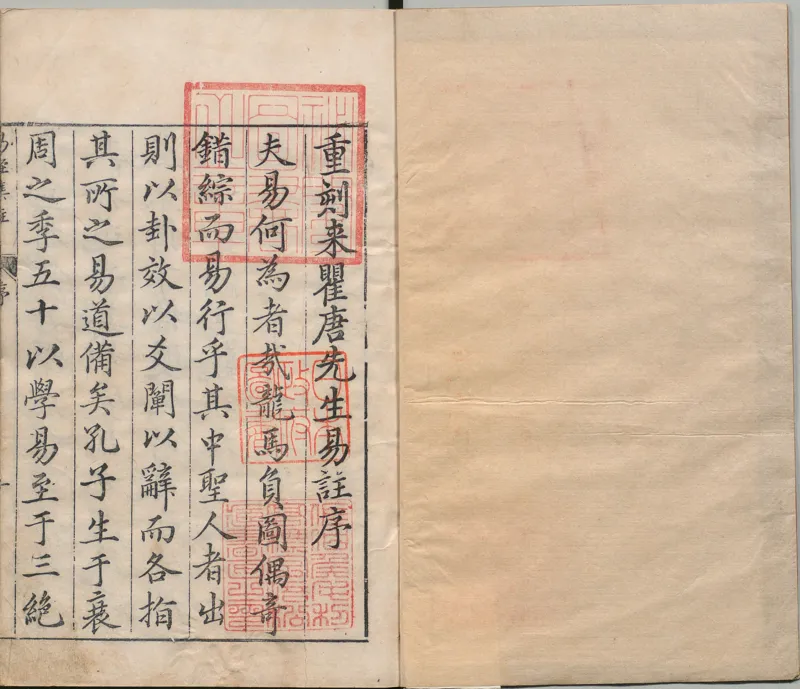 重刻来瞿唐先生易註序
夫易何為者哉龍馬負圖偶奇
錯綜而易行乎其中聖人者出
則以卦效以爻闡以辭而各指
其所之易道備矣孔子生于衰
周之季五十以學易至于三絶
易經集註
序